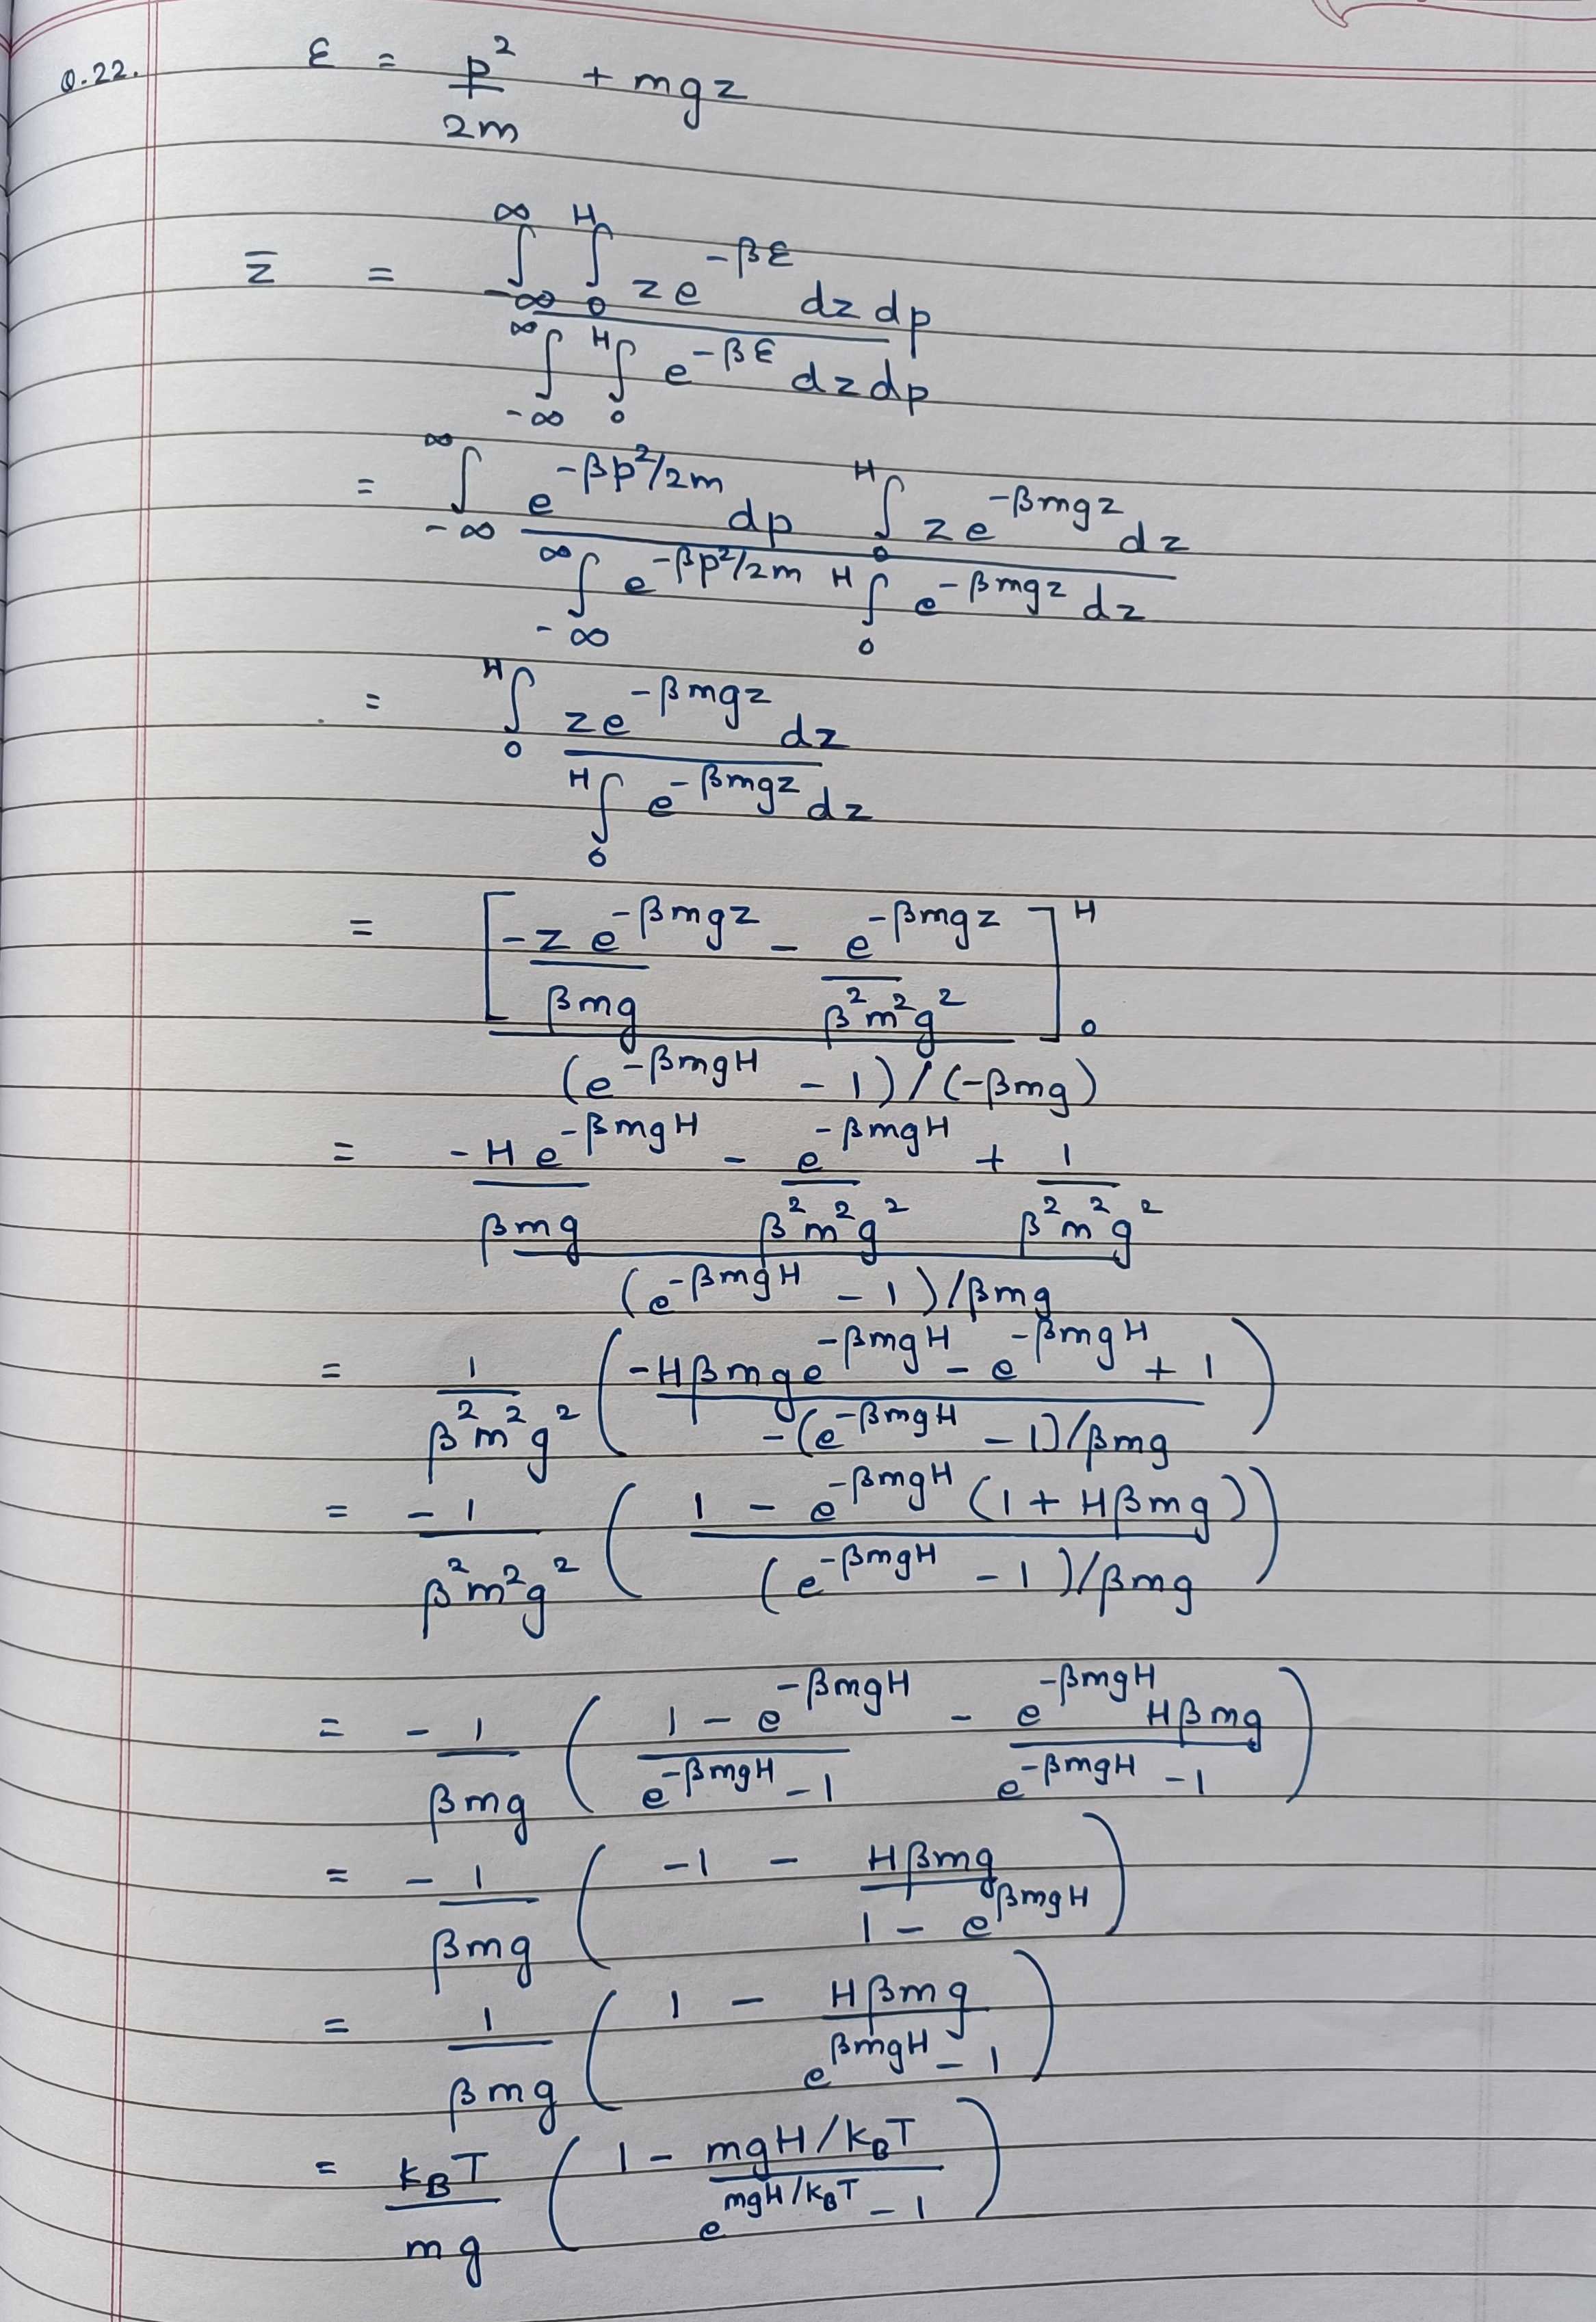 Q.22. ε = p²/2m + mgz
z̄ = ∫_{-∞}^{∞} ∫_0^H z e^{-βε} dz dp / ∫_{-∞}^{∞} ∫_0^H e^{-βε} dz dp
= ∫_{-∞}^{∞} e^{-βp²/2m} dp ∫_0^H z e^{-βmgz} dz / ∫_{-∞}^{∞} e^{-βp²/2m} ∫_0^H e^{-βmgz} dz
= ∫_0^H z e^{-βmgz} dz / ∫_0^H e^{-βmgz} dz
= [ -z e^{-βmgz} / βmg - e^{-βmgz} / β²m²g² ]_0^H / (e^{-βmgH} - 1) / (-βmg)
= -H e^{-βmgH} / βmg - e^{-βmgH} / β²m²g² + 1 / β²m²g² / (e^{-βmgH} - 1) / βmg
= 1 / β²m²g² ( -Hβmg e^{-βmgH} - e^{-βmgH} + 1 / -(e^{-βmgH} - 1) / βmg )
= -1 / β²m²g² ( 1 - e^{-βmgH} (1 + Hβmg) / (e^{-βmgH} - 1) / βmg )
= -1 / βmg ( 1 - e^{-βmgH} / e^{-βmgH} - 1 - e^{-βmgH} Hβmg / e^{-βmgH} - 1 )
= -1 / βmg ( -1 - Hβmg / 1 - e^{βmgH} )
= 1 / βmg ( 1 - Hβmg / e^{βmgH} - 1 )
= k_BT / mg ( 1 - mgH/k_BT / e^{mgH/k_BT} - 1 )